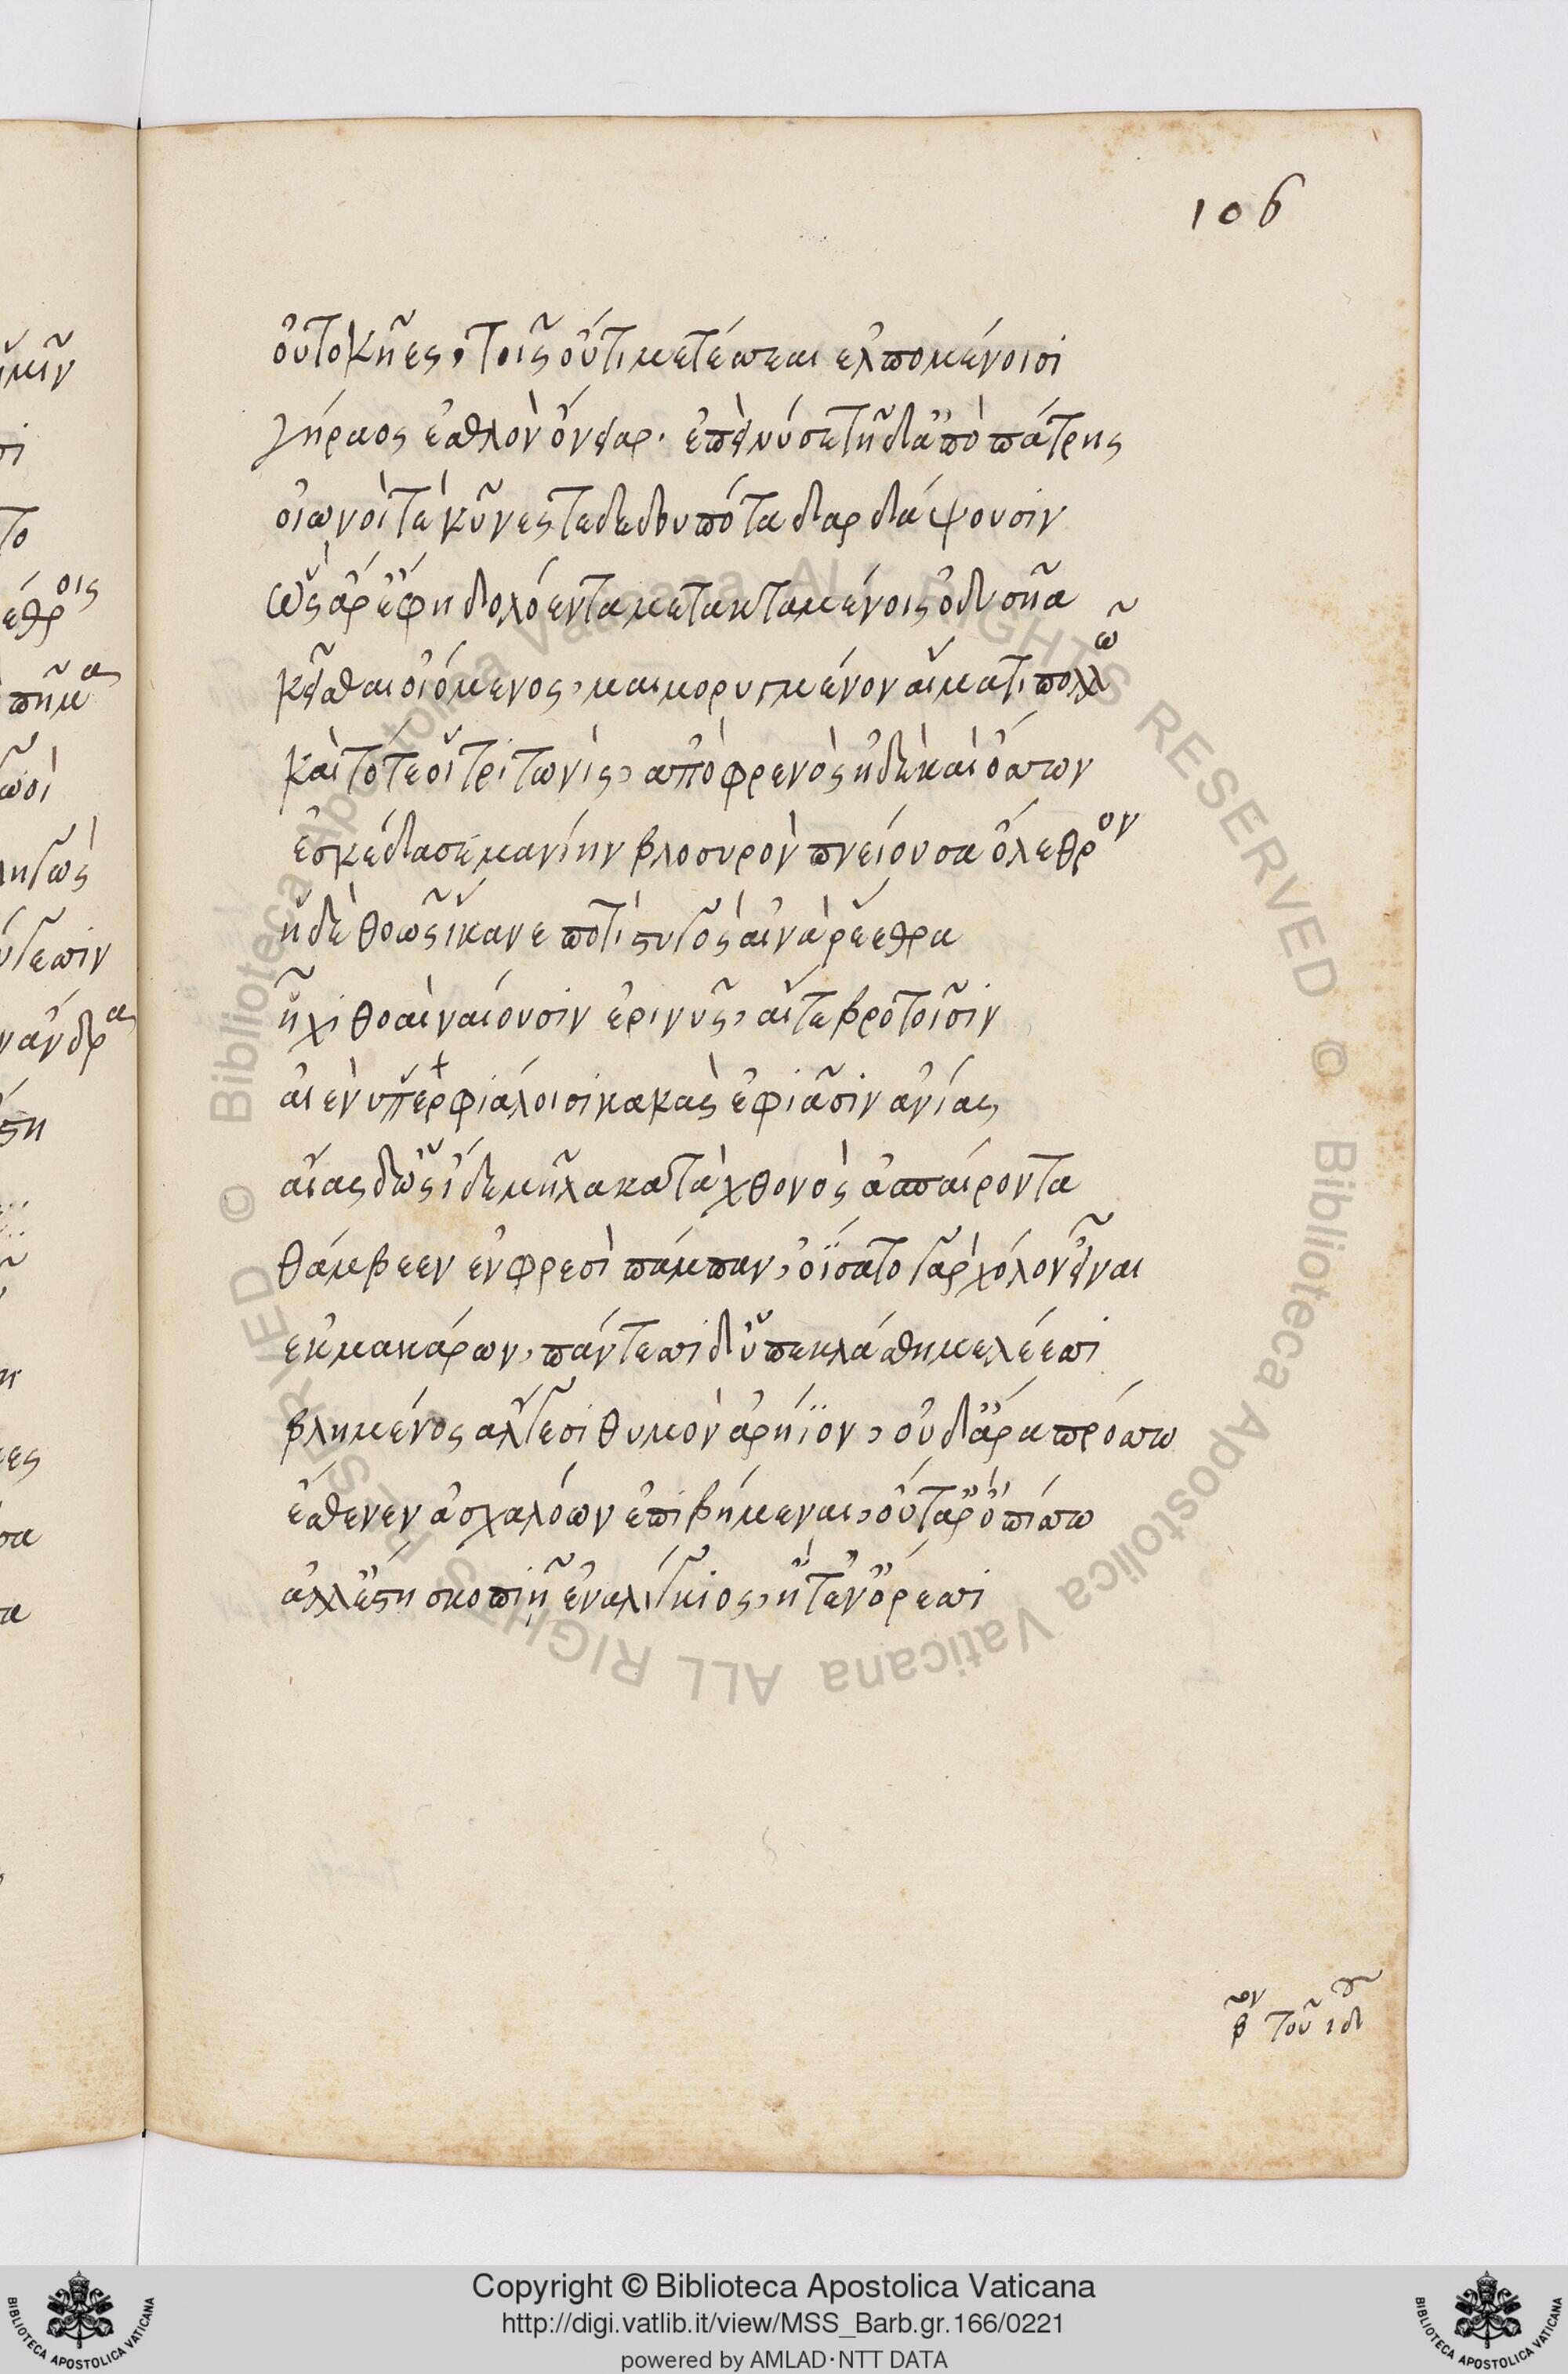 106
οὐ τοκῆες, τοῖς οὔτι μετέσσεαι ἐλπομένοισι
γήραος ἐσθλὸν ὄνειαρ· ἐπεὶ νύ σε τῆδ' ἀπὸ πάτρης
οἰωνοί τε κύνες τε δεδουπότα δαρδάψουσιν
ὣς ἄρ' ἔφη δολόεντα μετακταμένοις ὀδυσῆα
κεῖσθαι οἰόμενος, μεμορυγμένον αἵματι πολλῶ
καὶ τότε οἱ τριτωνὶς, ἀπὸ φρενὸς ἠδὲ καὶ ὄσσων
ἐσκέδασε μανίην βλοσυρὸν πνείουσα ὄλεθρον
ἡ δὲ θοῶς ἵκανε ποτὶ στυγὸς αἰνὰ ῥέεθρα
ἧχι θοαὶ ναίουσιν ἐριννῦς, αἵτε βροτοῖσιν
αἰὲν ὑπερφιάλοισι κακὰς ἐφιᾶσιν ἀνίας
αἴας δ' ὡς ἴδε μῆλα κατὰ χθονὸς ἀσπαίροντα
θάμβεεν ἐν φρεσὶ πάμπαν, ὀΐσατο γὰρ χόλον εἶναι
ἐκ μακάρων, πάντεσσι δ' ὑπεκλάσθη μελέεσσι
βλημένος ἄλγεσι θυμὸν ἀρήϊον, οὐδ' ἄρα πρόσσω
ἔσθενεν ἀσχαλόων ἐπιβήμεναι, οὔτ' ἄρ' ὀπίσσω
ἀλλ' ἔστη σκοπιῇ ἐναλίγκιος, ἥτ' ἐν ὄρεσσι
β τοῦ ιδ
Copyright © Biblioteca Apostolica Vaticana
http://digi.vatlib.it/view/MSS_Barb.gr.166/0221
powered by AMLAD·NTT DATA